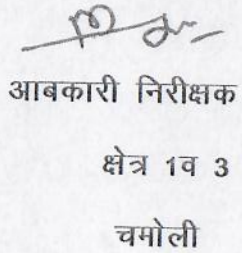 आबकारी निरीक्षक
क्षेत्र 1व 3
चमोली